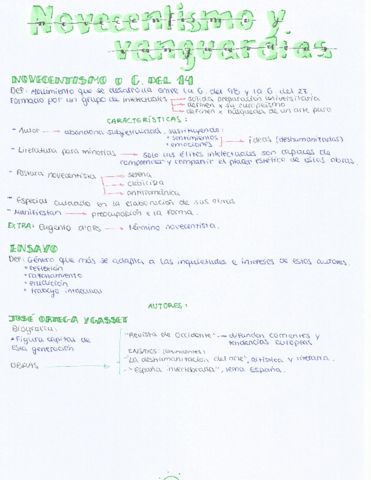 Novecentismo y
vanguardias
NOVECENTISMO O G. DEL 14
DEF: Movimiento que se desarrolla entre la G. del 98 y la G. del 27.
Formado por un grupo de intelectuales → sólida preparación universitaria
→ definen y su europeísmo
→ definen x búsqueda de un arte puro
CARACTERÍSTICAS:
- Autor → abandona subjetividad, sustituyendo:
• sentimientos
• emociones → ideas (deshumanizadas)
- Literatura para minorías → solo las élites intelectuales son capaces de
comprender y compartir el placer estético de estas obras
- Postura novecentista → serena
→ clasicista
→ antirromántica
- Especial cuidado en la elaboración de sus obras
- Manifiestan → preocupación x la forma.
EXTRA: Eugenio d'ORS → término novecentista.
ENSAYO
DEF: Género que más se adapta a las inquietudes e intereses de estos autores.
• reflexión
• razonamiento
• erudición
• trabajo intelectual
AUTORES:
JOSÉ ORTEGA Y GASSET
Biografía:
• Figura capital de
esta generación
OBRAS
- "Revista de Occidente" → difunden corrientes y
tendencias europeas
ENSAYOS:
- "La deshumanización del arte", artística y literaria.
- "España invertebrada", tema España.